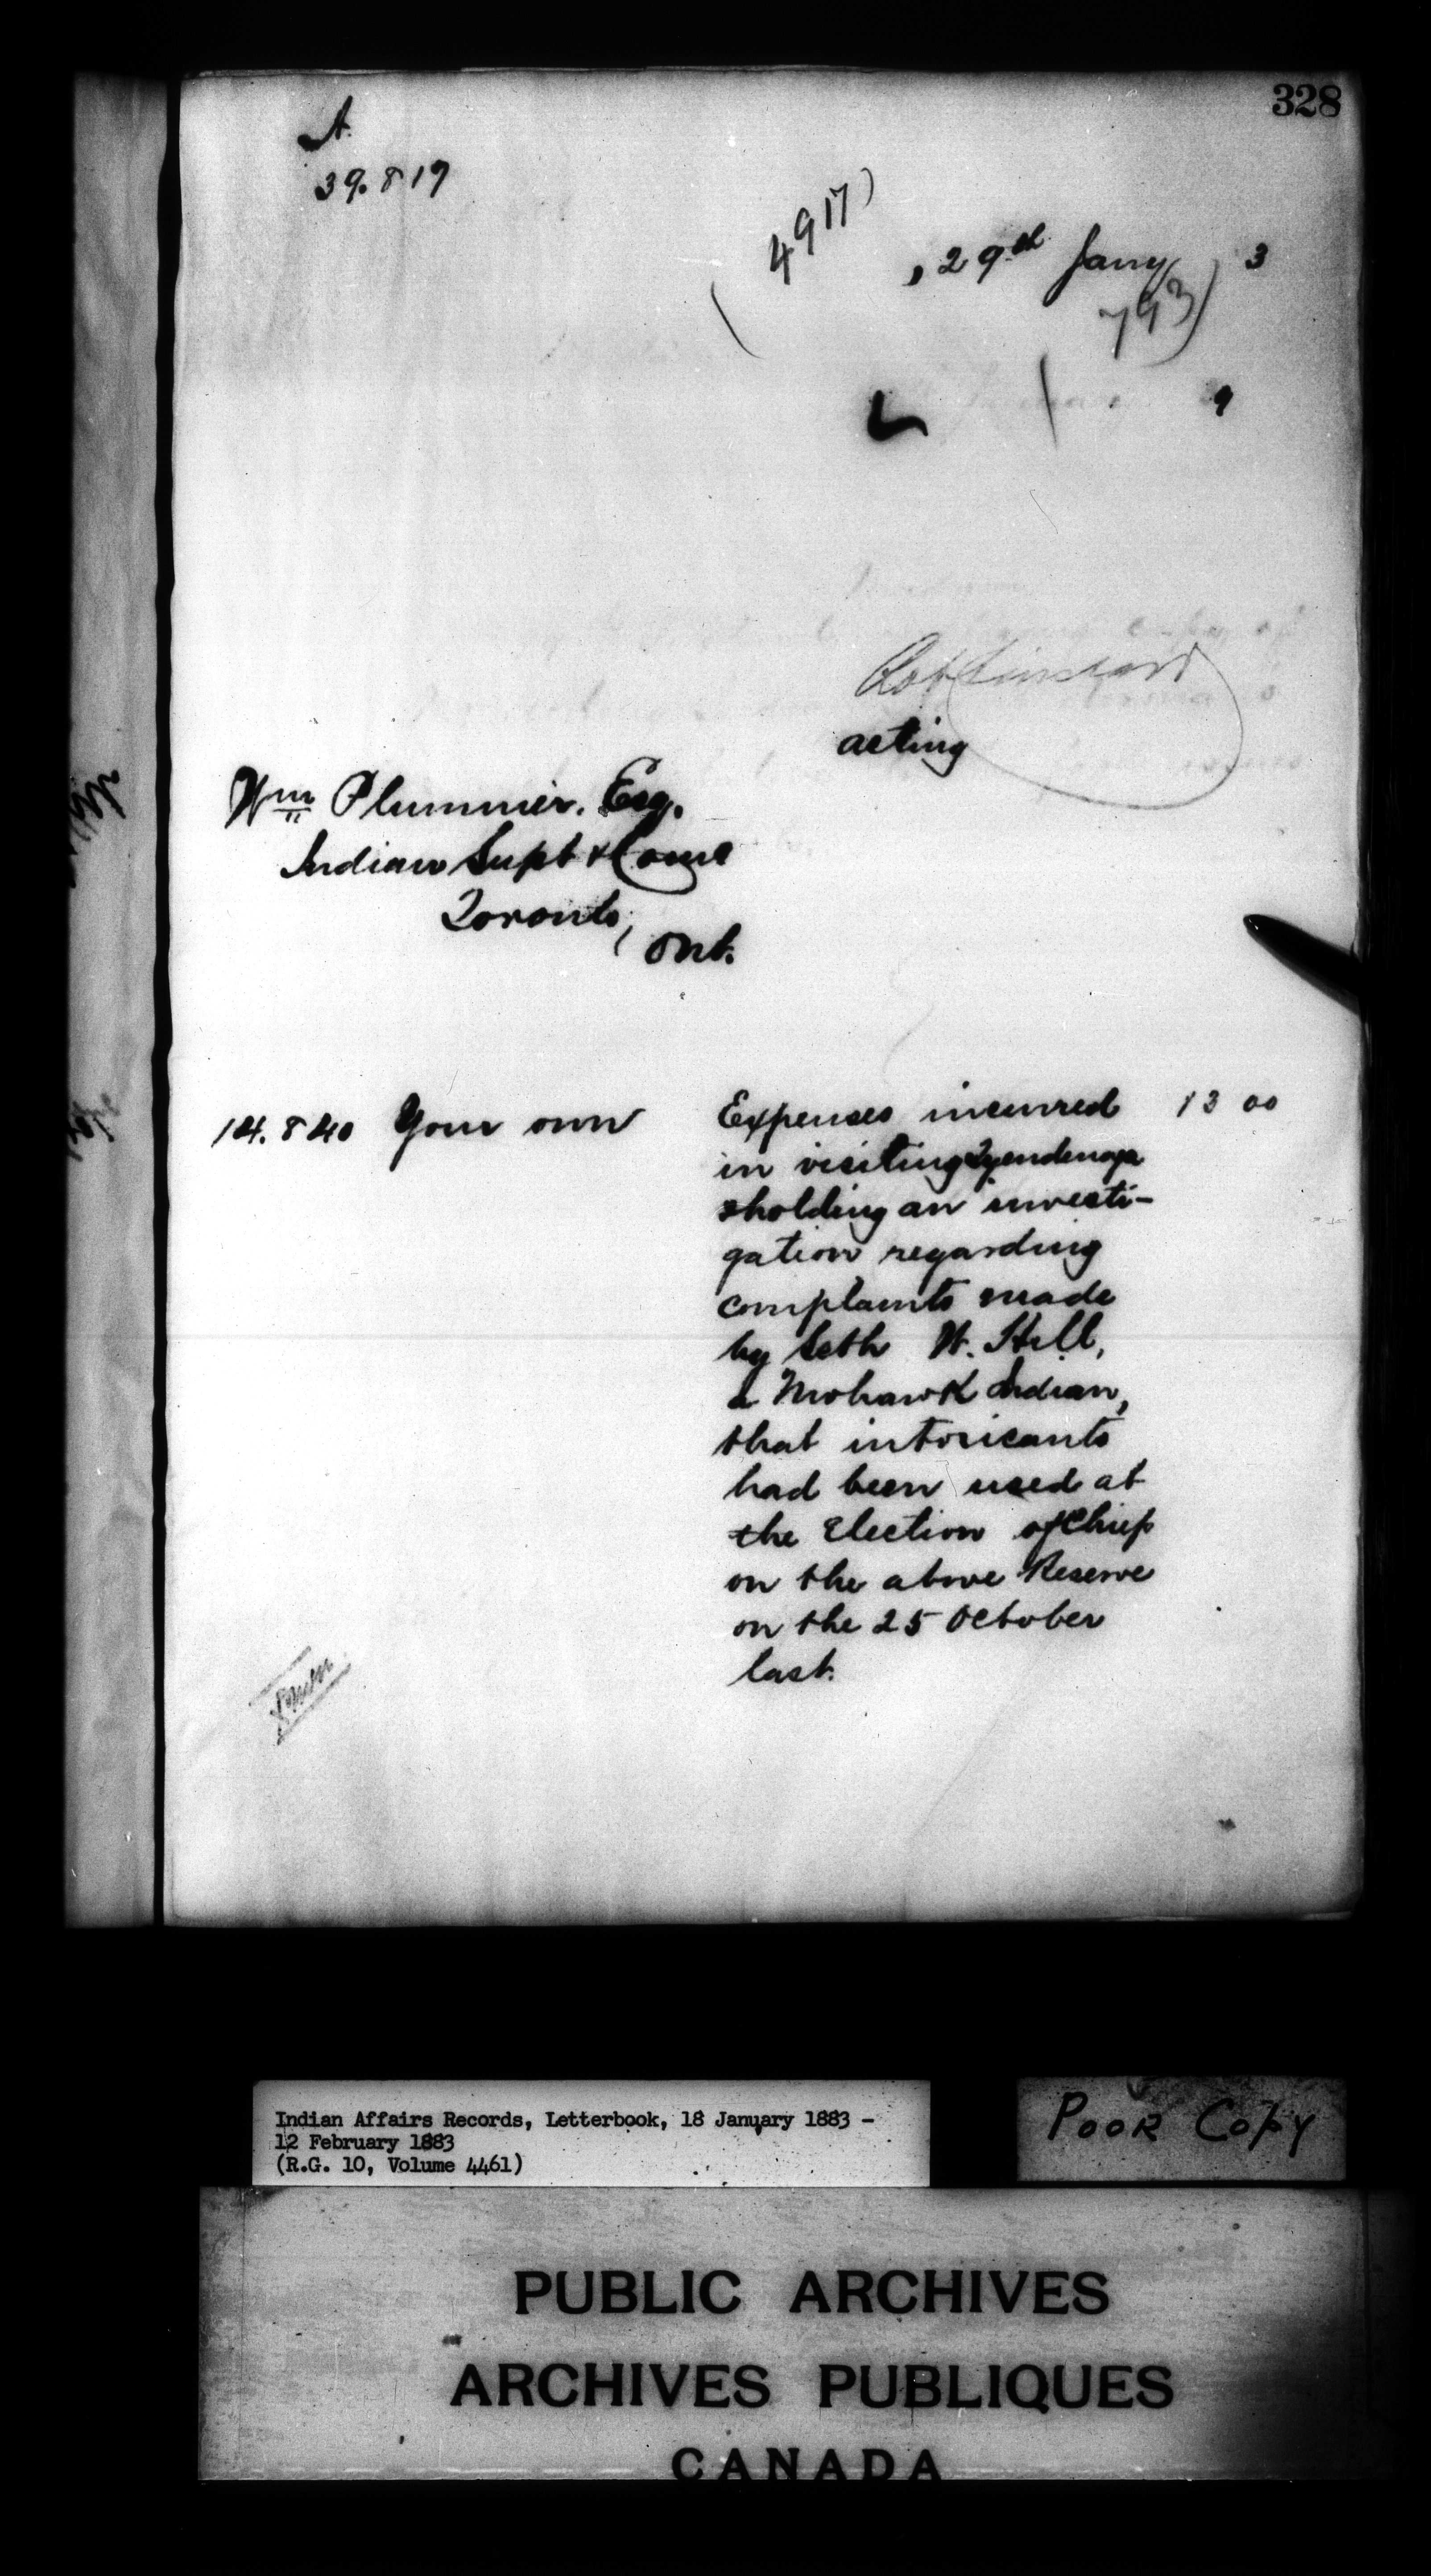 328
A.
39.819
(4917)
, 29th Jany 3
793)
9
acting
Wm Plummer. Esq.
Indian Supt & Comr
Toronto,
Ont.
14.840 Your own Expenses incurred 13 00
in visiting Tyendenaga
& holding an investi-
gation regarding
complaints made
by Seth W. Hill,
a Mohawk Indian,
that intoxicants
had been used at
the Election of Chiefs
on the above Reserve
on the 25 October
last.
Indian Affairs Records, Letterbook, 18 January 1883 -
12 February 1883
(R.G. 10, Volume 4461)
POOR COPY
PUBLIC ARCHIVES
ARCHIVES PUBLIQUES
CANADA